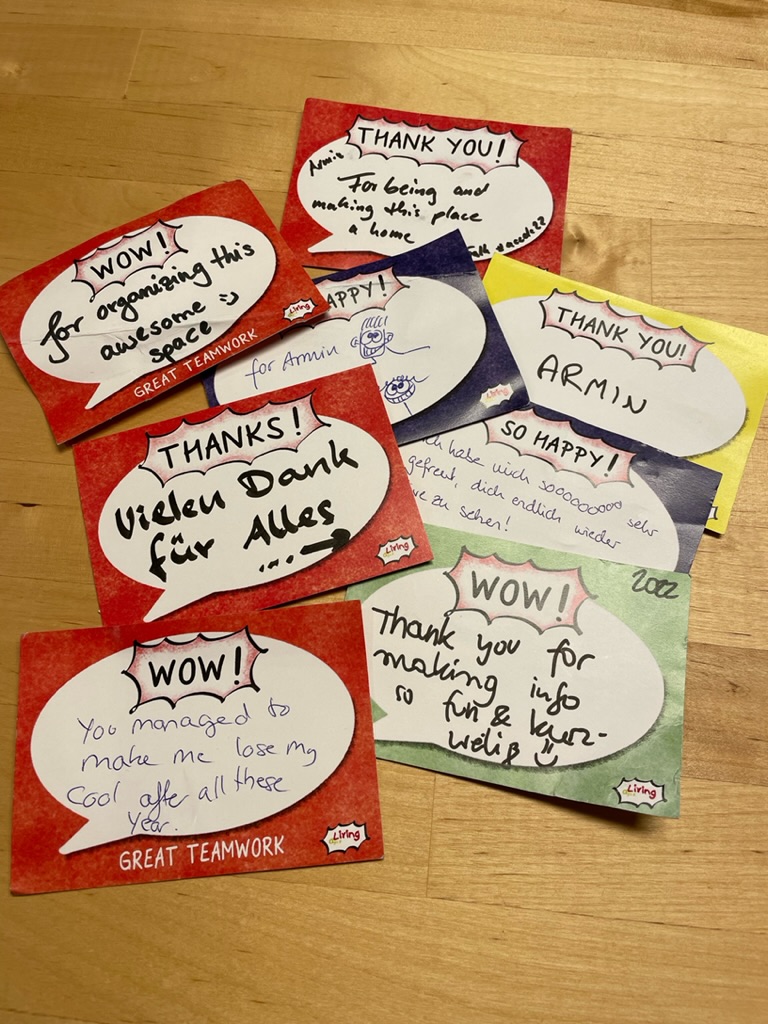 THANK YOU!
Armin
For being and
making this place
a home
WOW!
for organizing this
awesome :)
space
GREAT TEAMWORK
Living
APPY!
for Armin
Living
THANK YOU!
ARMIN
THANKS!
Vielen Dank
für Alles
...
Living
SO HAPPY!
ich habe mich sooooooooo sehr
gefreut, dich endlich wieder
zu sehen!
WOW!
2022
Thank you for
making info
so fun & kurz-
weilig
Living
WOW!
You managed to
make me lose my
cool after all these
Year.
GREAT TEAMWORK
Living